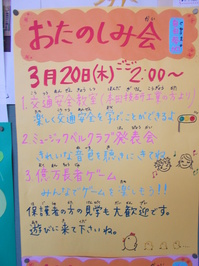 おたのしみ会
3月20日(木)ごご2:00〜
1.交通安全教室
楽しく交通安全を学ぶことができるよ
2.ミュージックベルクラブ発表会
きれいな音色を聴きにきてね
3.億万長者ゲーム
みんなでゲームを楽しもう!!
保護者の方の見学も大歓迎です。
遊びに来て下さいね。